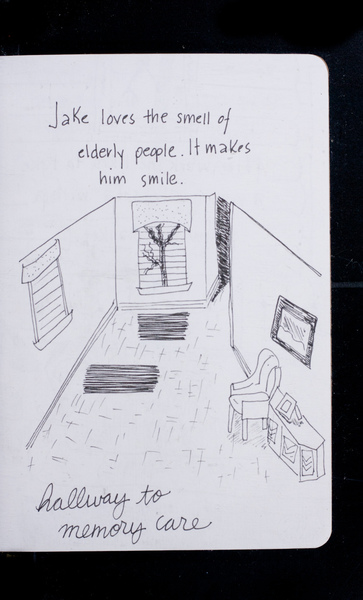 Jake loves the smell of
elderly people. It makes
him smile.
hallway to
memory care